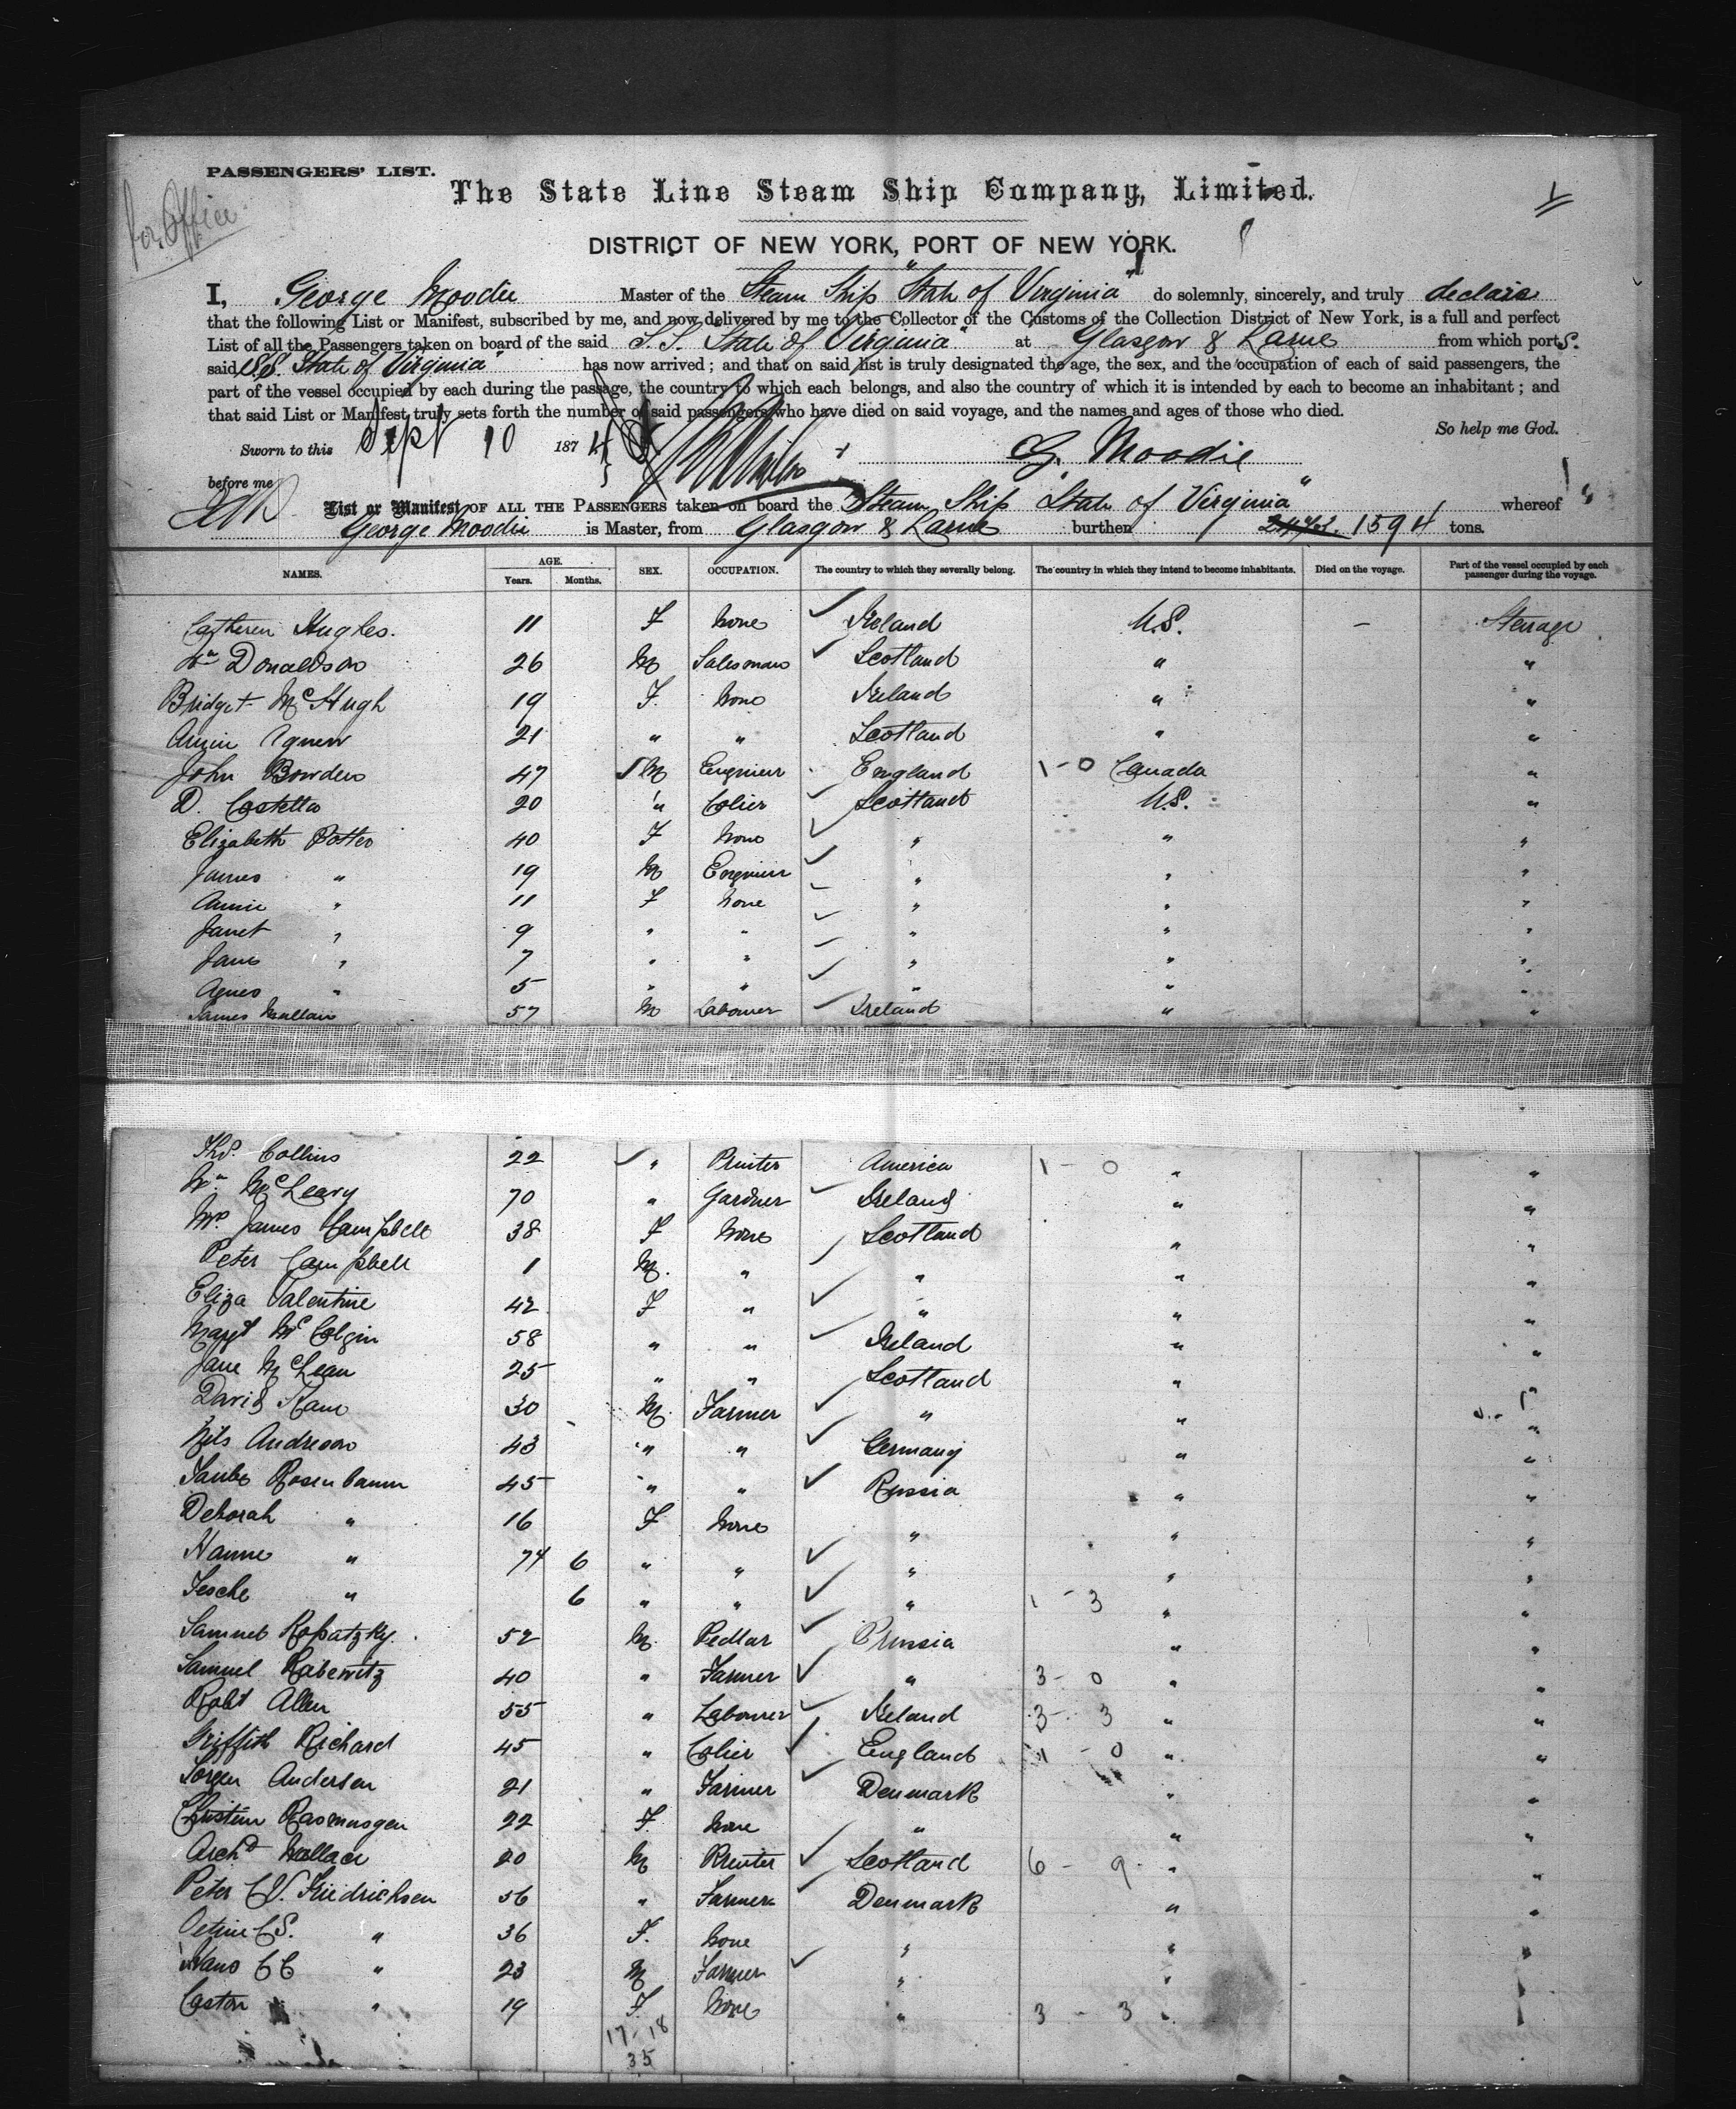 PASSENGERS' LIST.
for Office
The State Line Steam Ship Company, Limited.
1
DISTRICT OF NEW YORK, PORT OF NEW YORK.
I, George Moodie Master of the Steam Ship "State of Virginia" do solemnly, sincerely, and truly declare
that the following List or Manifest, subscribed by me, and now delivered by me to the Collector of the Customs of the Collection District of New York, is a full and perfect
List of all the Passengers taken on board of the said S.S. State of Virginia" at Glasgow & Larne from which ports.
said S.S. State of Virginia" has now arrived; and that on said list is truly designated the age, the sex, and the occupation of each of said passengers, the
part of the vessel occupied by each during the passage, the country to which each belongs, and also the country of which it is intended by each to become an inhabitant; and
that said List or Manifest truly sets forth the number of said passengers who have died on said voyage, and the names and ages of those who died.
So help me God.
Sworn to this Sept 10 1874
G. Moodie
before me
List or Manifest OF ALL THE PASSENGERS taken on board the Steam Ship "State of Virginia" whereof
George Moodie is Master, from Glasgow & Larne burthen 1594 tons.
NAMES. AGE. Years. Months. SEX. OCCUPATION. The country to which they severally belong. The country in which they intend to become inhabitants. Died on the voyage. Part of the vessel occupied by each passenger during the voyage.
Catheren Hughes. 11 F None Ireland U.S. – Steerage
Wm Donaldson 26 M Salesman Scotland " "
Bridget McHugh 19 F. None Ireland " "
Annie Agnew 21 " " Scotland " "
John Bowden 47 M Engineer England 1-0 Canada "
D. Costello 20 " Colier Scotland U.S. "
Elizabeth Potter 40 F None " " "
James " 19 M Engineer " " "
Annie " 11 F None " " "
Janet " 9 " " " " "
Jane " 7 " " " " "
Agnes " 5 " " " " "
James Mallain 57 M Labourer Ireland " "
Thos. Collins 22 " Printer America 1-0 " "
Wm McLeary 70 " Gardner Ireland " "
Mrs James Campbell 38 F None Scotland " "
Peter Campbell 1 M. " " " "
Eliza Valentine 42 F " " " "
Margt McColgin 58 " " Ireland " "
Jane McLean 25 " " Scotland " "
David Kane 30 M. Farmer " " "
Nils Andreson 43 " " Germany " "
Rosenbaum 45 " " Russia " "
Deborah " 16 F None " " "
Hanne " 74 6 " " " " "
Tesche " 6 " " " 1-3 " "
Samuel Kopatzky. 52 M. Pedlar Prussia " "
Samuel Rabewitz 40 " Farmer " 3-0 " "
Robt Allen 55 " Labourer Ireland 3-3 " "
Griffith Richard 45 " Colier England 1-0 " "
Jorgen Andersen 21 " Farmer Denmark " "
Christine Rasmusgen 22 F. None " " "
Archd Wallace 20 M Printer Scotland 6-9 " "
Peter C.V. Friedrichsen 56 " Farmer Denmark " "
Petrine C S. " 36 F. None " " "
Hans C C " 23 M Farmer " " "
Caston " 19 F. None " 3-3 " "
17-18
35